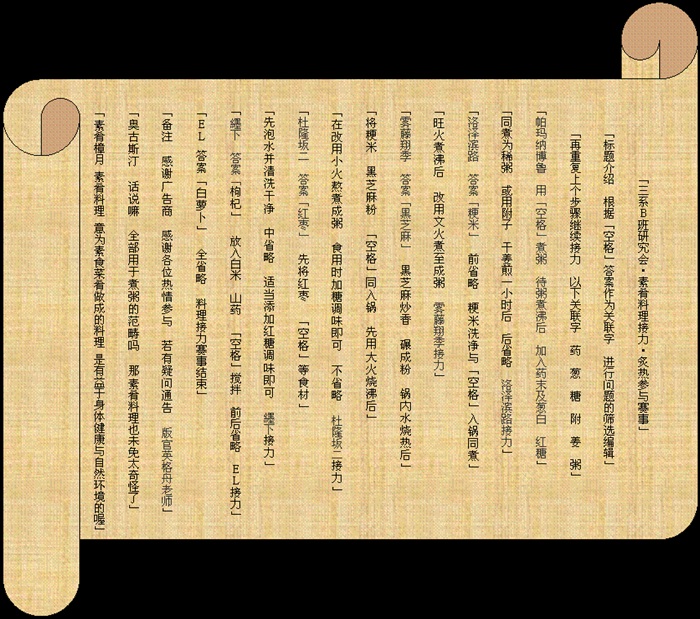 「三系B班研究会·素肴料理接力·炙热参与赛事」
「标题介绍 根据「空格」答案作为关联字 进行问题的筛选编辑」
「再重复上个步骤继续接力 以下关联字 药 葱 糖 附 姜 粥」
「帕玛纳博鲁 用「空格」煮粥 待粥煮沸后 加入药末及葱白 红糖」
「同煮为稀粥 或用附子 干姜煎一小时后 后省略 洛洋滨路接力」
「洛洋滨路 答案「粳米」 前省略 粳米洗净与「空格」入锅同煮」
「旺火煮沸后 改用文火煮至成粥 雾藤翔季接力」
「雾藤翔季 答案「黑芝麻」 黑芝麻炒香 碾成粉 锅内水烧热后」
「将粳米 黑芝麻粉 「空格」同入锅 先用大火烧沸后」
「在改用小火熬煮成粥 食用时加糖调味即可 不省略 杜隆坂二接力」
「杜隆坂二 答案「红枣」 先将红枣 「空格」等食材」
「先泡水并清洗干净 中省略 适当添加红糖调味即可 纆卞接力」
「纆卞 答案「枸杞」 放入白米 山药 「空格」搅拌 前后省略 EL接力」
「EL 答案「白萝卜」 全省略 料理接力赛事结束」
「备注 感谢广告商 感谢各位热情参与 若有疑问通告 版官英格舟老师」
「奥古斯汀 话说嘛 全部用于煮粥的范畴吗 那素肴料理也未免太奇怪了」
「素肴橦月 素肴料理 意为素食菜肴做成的料理 是有益于身体健康与自然环境的喔」